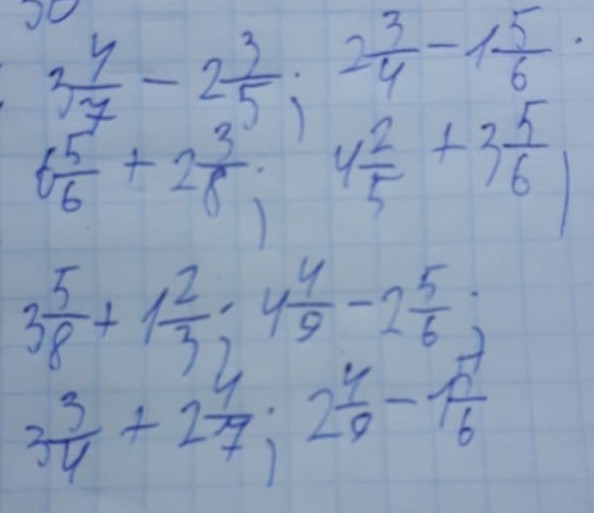 3 4/7 - 2 3/5; 2 3/4 - 1 5/6.
6 5/6 + 2 3/8; 4 2/5 + 3 5/6;
3 5/8 + 1 2/3; 4 4/9 - 2 5/6;
3 3/4 + 2 4/7; 2 4/9 - 1 5/6